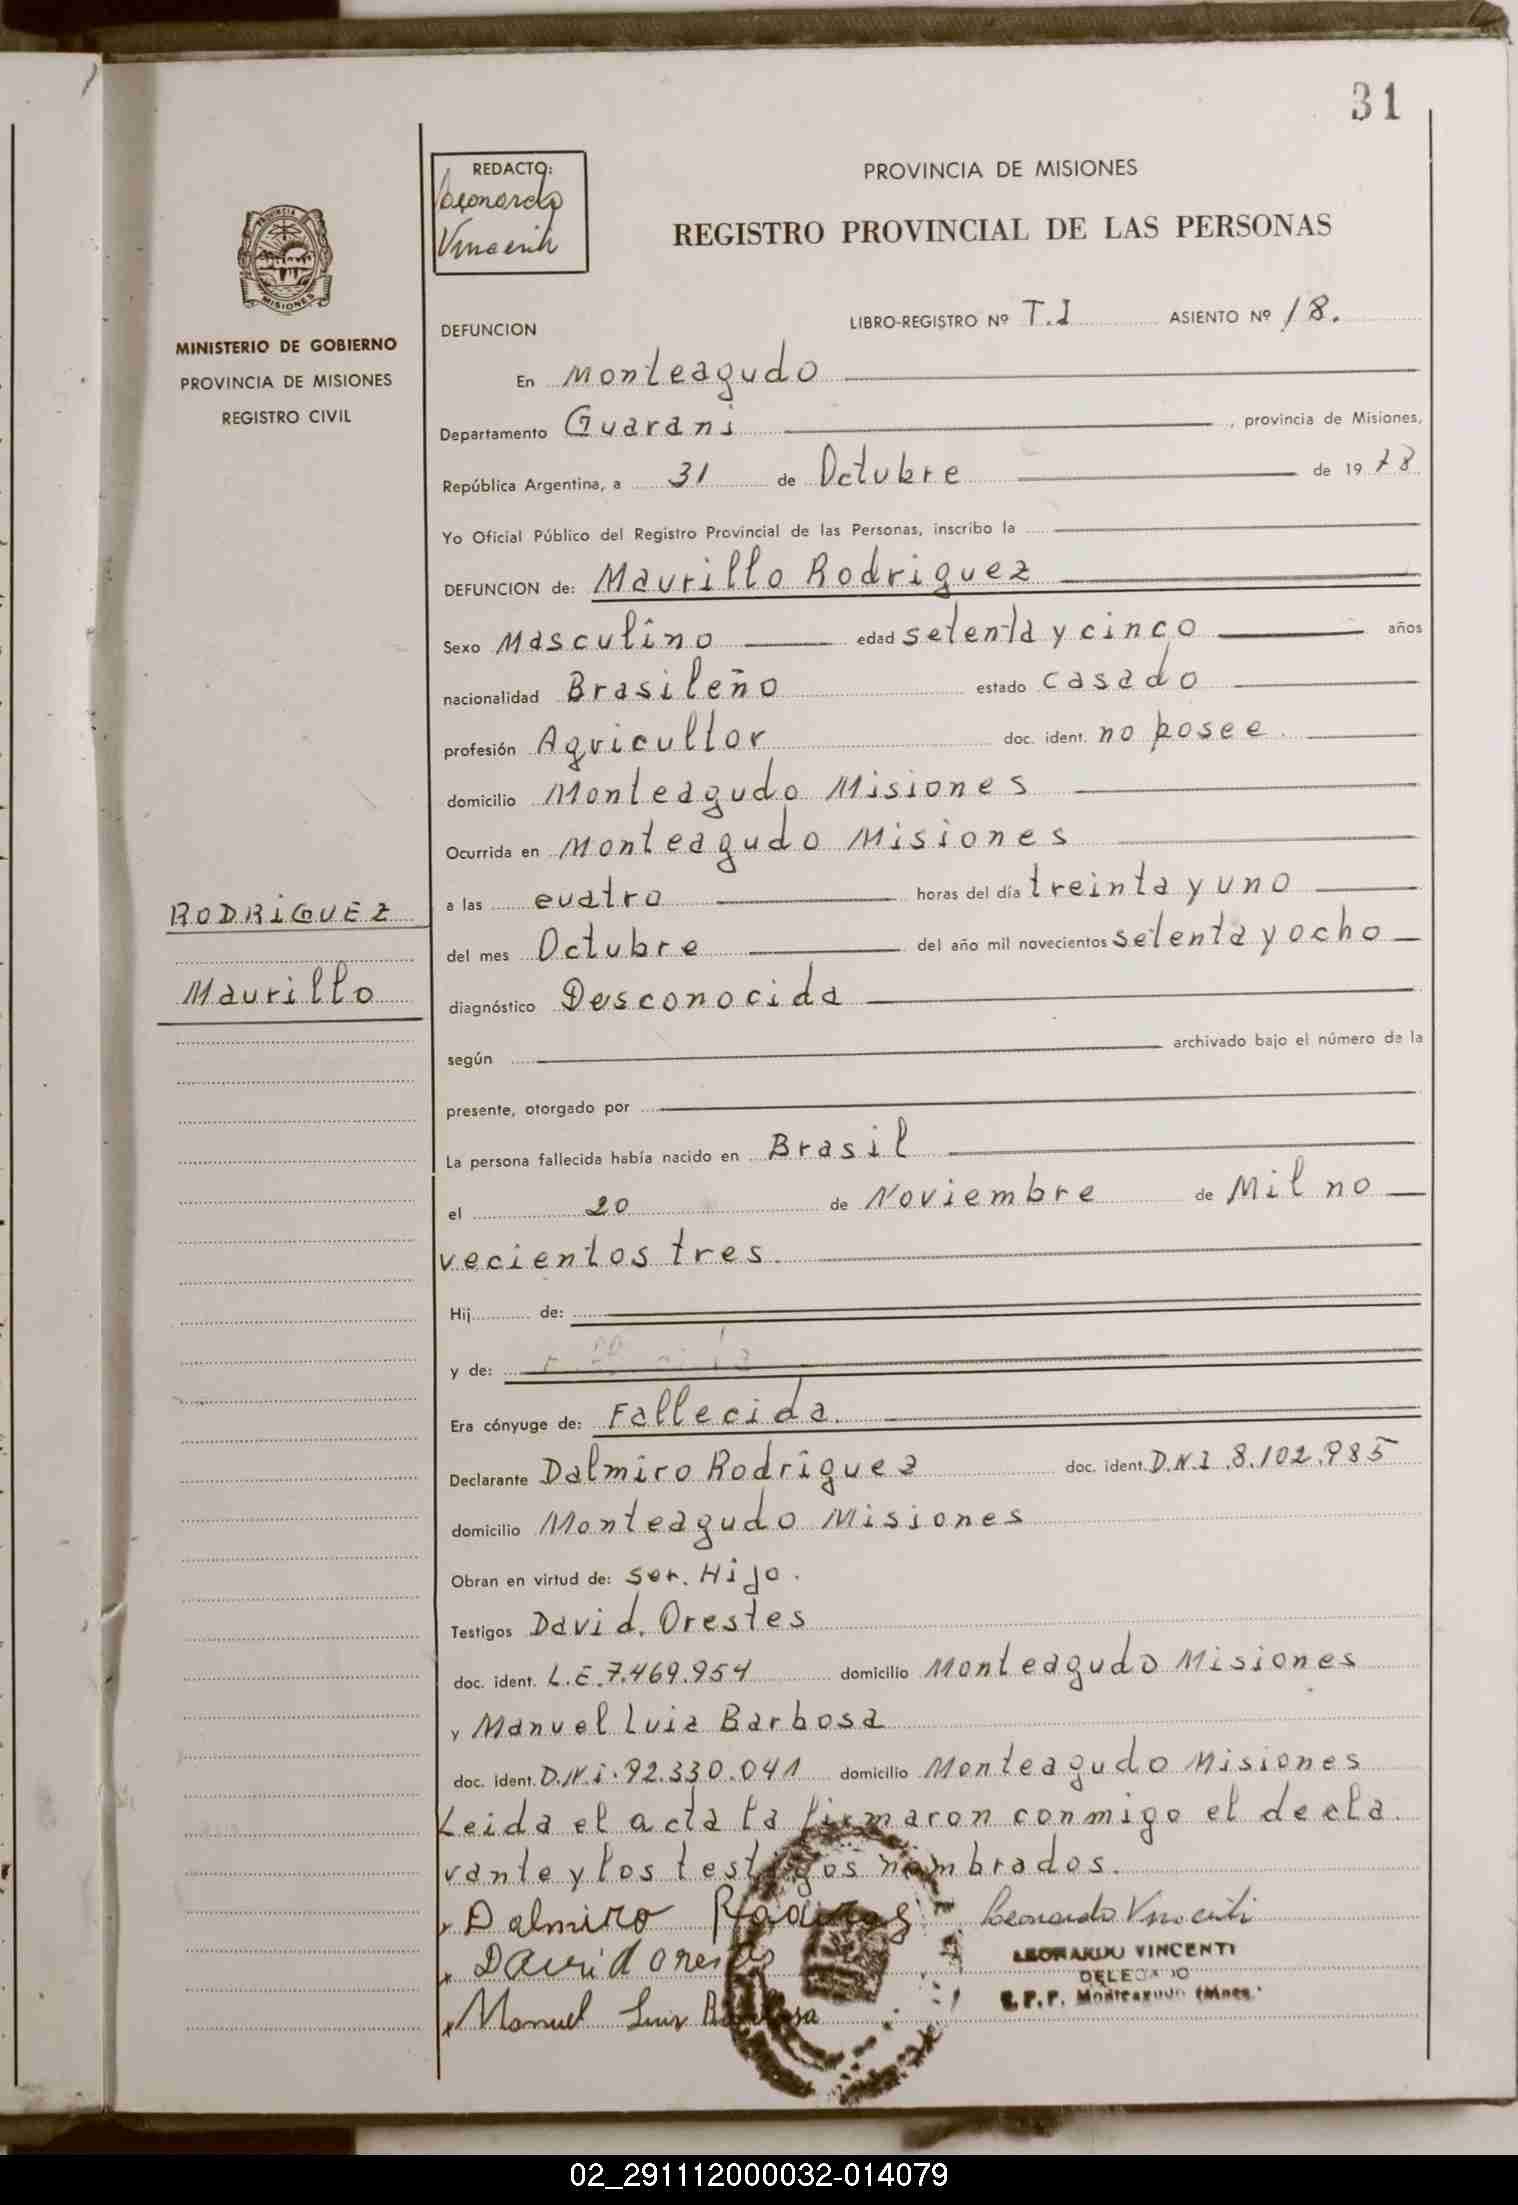 31
REDACTO:
Leonardo
Vincenti
PROVINCIA DE MISIONES
REGISTRO PROVINCIAL DE LAS PERSONAS
MISIONES
MINISTERIO DE GOBIERNO
PROVINCIA DE MISIONES
REGISTRO CIVIL
DEFUNCION LIBRO-REGISTRO Nº T.I ASIENTO Nº 18.
En Monteagudo
Departamento Guarani, provincia de Misiones,
República Argentina, a 31 de Octubre de 1978
Yo Oficial Público del Registro Provincial de las Personas, inscribo la
DEFUNCION de: Maurillo Rodriguez
Sexo Masculino edad setenta y cinco años
nacionalidad Brasileño estado casado
profesión Agricultor doc. ident. no posee.
domicilio Monteagudo Misiones
Ocurrida en Monteagudo Misiones
RODRIGUEZ
Maurillo
a las cuatro horas del día treinta y uno
del mes Octubre del año mil novecientos setenta y ocho
diagnóstico Desconocida
según archivado bajo el número de la
presente, otorgado por
La persona fallecida había nacido en Brasil
el 20 de Noviembre de Mil no
vecientos tres.
Hij de:
y de:
Era cónyuge de: Fallecida.
Declarante Dalmiro Rodriguez doc. ident. D.N.I. 8.102.985
domicilio Monteagudo Misiones
Obran en virtud de: ser. Hijo.
Testigos David. Orestes
doc. ident. L.E. 7.469.954 domicilio Monteagudo Misiones
y Manuel Luis Barbosa
doc. ident. D.N.i. 92.330.041 domicilio Monteagudo Misiones
Leida el acta la firmaron conmigo el decla.
rante y los testigos nombrados.
x Dalmiro Leonardo Vincenti
x David orestes
x Manuel Luis Barbosa
LEONARDO VINCENTI
DELEGADO
R.P.P. Monteagudo (Mnes.
02_291112000032-014079